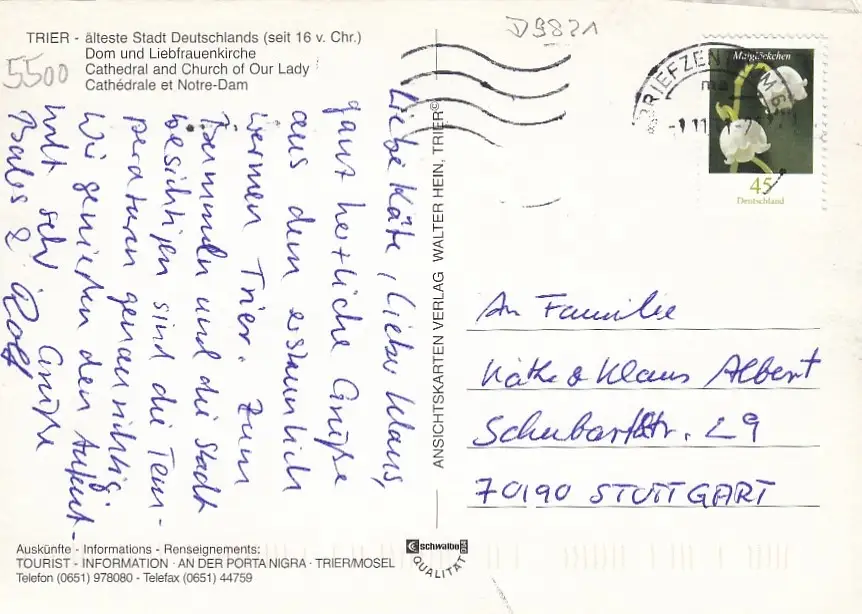 TRIER - älteste Stadt Deutschlands (seit 16 v. Chr.)
Dom und Liebfrauenkirche
Cathedral and Church of Our Lady
Cathédrale et Notre-Dam
5500
D9821
Liebe Käte, lieber Klaus,
ganz herzliche Grüße
aus dem erstaunlich
warmen Trier. Zum
Bummeln und die Stadt
besichtigen sind die Tem-
peraturen genau richtig.
Wir genießen den Aufent-
halt sehr Grüße
Rolf
ANSICHTSKARTEN VERLAG WALTER HEIN, TRIER©
BRIEFZEN
Maiglöckchen
45
Deutschland
An Familie
Käthe & Klaus Albert
Schubartstr. 29
70190 STUTTGART
Auskünfte - Informations - Renseignements:
TOURIST - INFORMATION · AN DER PORTA NIGRA · TRIER/MOSEL
Telefon (0651) 978080 - Telefax (0651) 44759
schwalbe
QUALITÄT